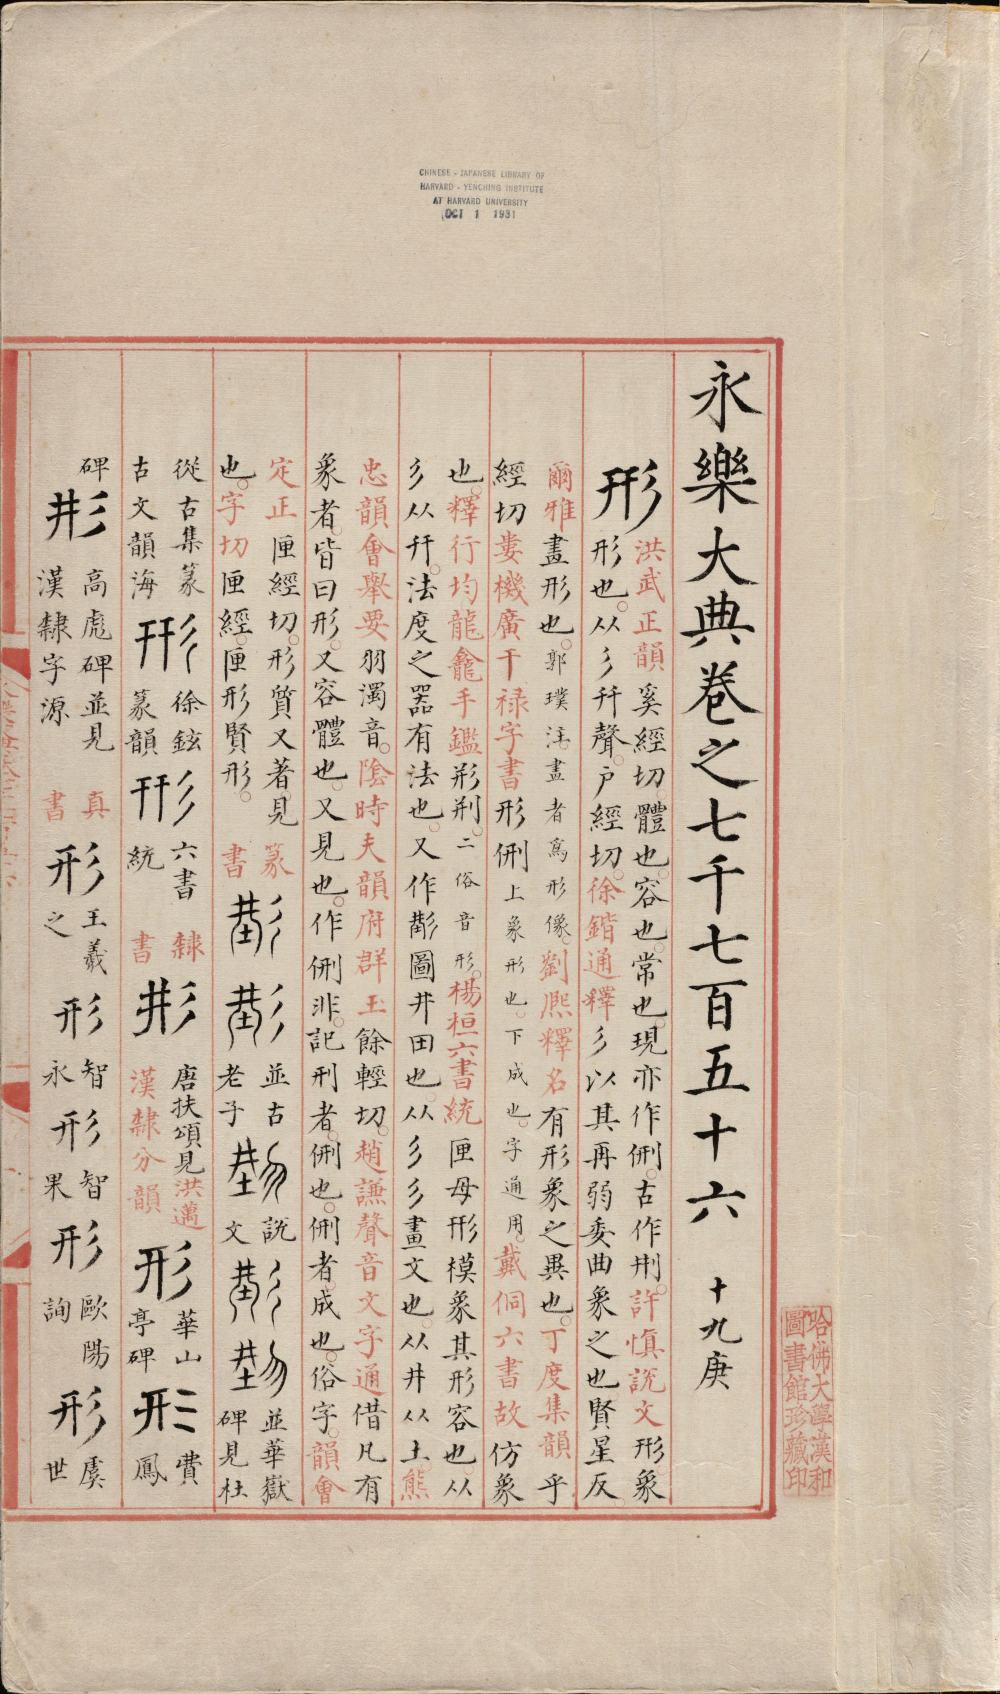 CHINESE - JAPANESE LIBRARY OF
HARVARD - YENCHING INSTITUTE
AT HARVARD UNIVERSITY
OCT 1 1931
永樂大典卷之七千七百五十六 十九庚
形
洪武正韻奚經切體也容也常也現亦作侀古作㓝許慎說文形象
形也从彡幵聲戶經切徐鍇通釋彡以其再弱委曲象之也賢星反
爾雅畫形也郭璞注畫者為形像劉熙釋名有形象之異也丁度集韻乎
經切婁機廣干禄字書形侀上象形也下成也字通用戴侗六書故仿象
也釋行均龍龕手鑑形㓝二俗音形楊桓六書統匣母形模象其形容也从
彡从幵法度之器有法也又作圖井田也从彡彡畫文也从井从土熊
忠韻會舉要羽濁音陰時夫韻府群玉餘輕切趙謙聲音文字通借凡有
象者皆曰形又容體也又見也作侀非記刑者侀也侀者成也俗字韻會
定正匣經切形質又著見
也字切匣經匣形賢形
篆書
並古老子
說文
並華嶽碑見杜
從古集篆
古文韻海
形
徐鉉篆韻
形
六書統
隸書
形
唐扶頌見洪邁
漢隸分韻
形
華山亭碑
形
費鳳
碑
形
高彪碑並見
漢隸字源
真書
形
王羲之
形
智永
形
智果
形
歐陽詢
形
虞世
哈佛大學漢和
圖書館珍藏印